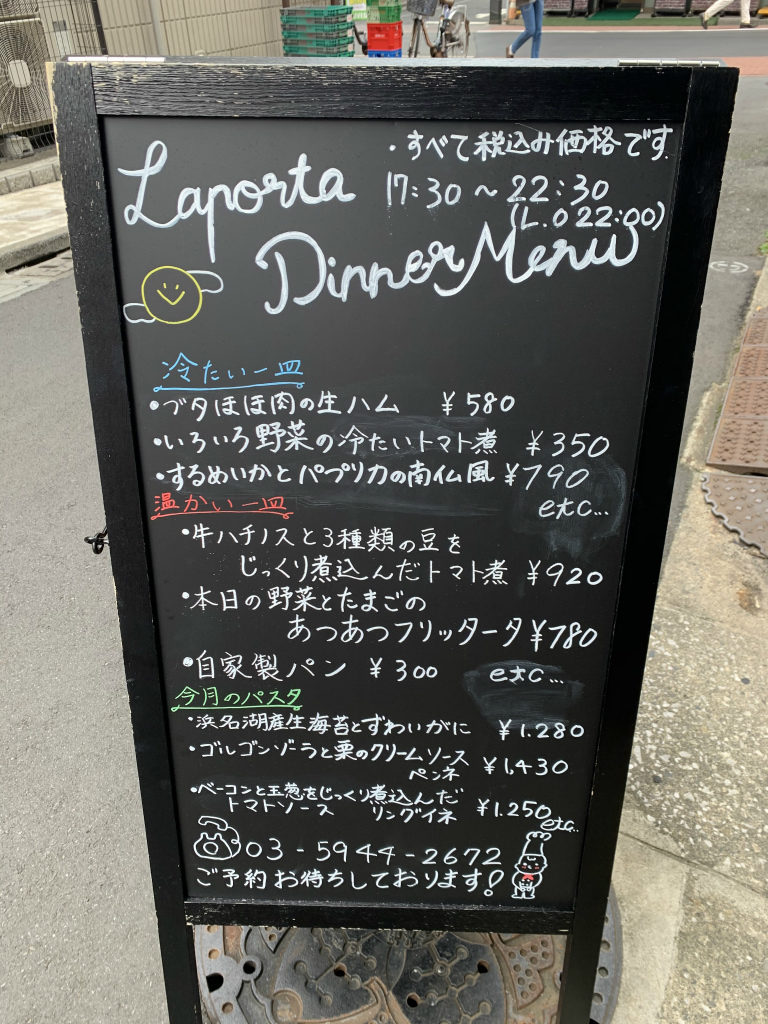 ・すべて税込み価格です.
Laporta 17:30～22:30
(L.O 22:00)
Dinner Menu
冷たい一皿
・ブタほほ肉の生ハム ¥580
・いろいろ野菜の冷たいトマト煮 ¥350
・するめいかとパプリカの南仏風 ¥790
etc...
温かい一皿
・牛ハチノスと3種類の豆を
じっくり煮込んだトマト煮 ¥920
・本日の野菜とたまごの
あつあつフリッタータ ¥780
・自家製パン ¥300 etc...
今月のパスタ
・浜名湖産生海苔とずわいがに ¥1.280
・ゴルゴンゾーラと栗のクリームソース
ペンネ ¥1,430
・ベーコンと玉葱をじっくり煮込んだ
トマトソース リングイネ ¥1.250
etc..
03-5944-2672
ご予約お待ちしております!